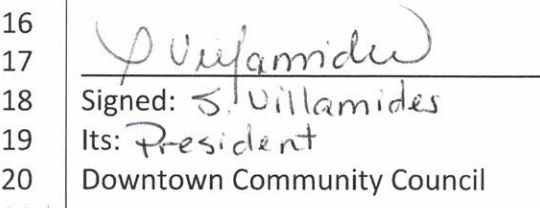 16
17 S Villamides
18 Signed: S. Villamides
19 Its: President
20 Downtown Community Council